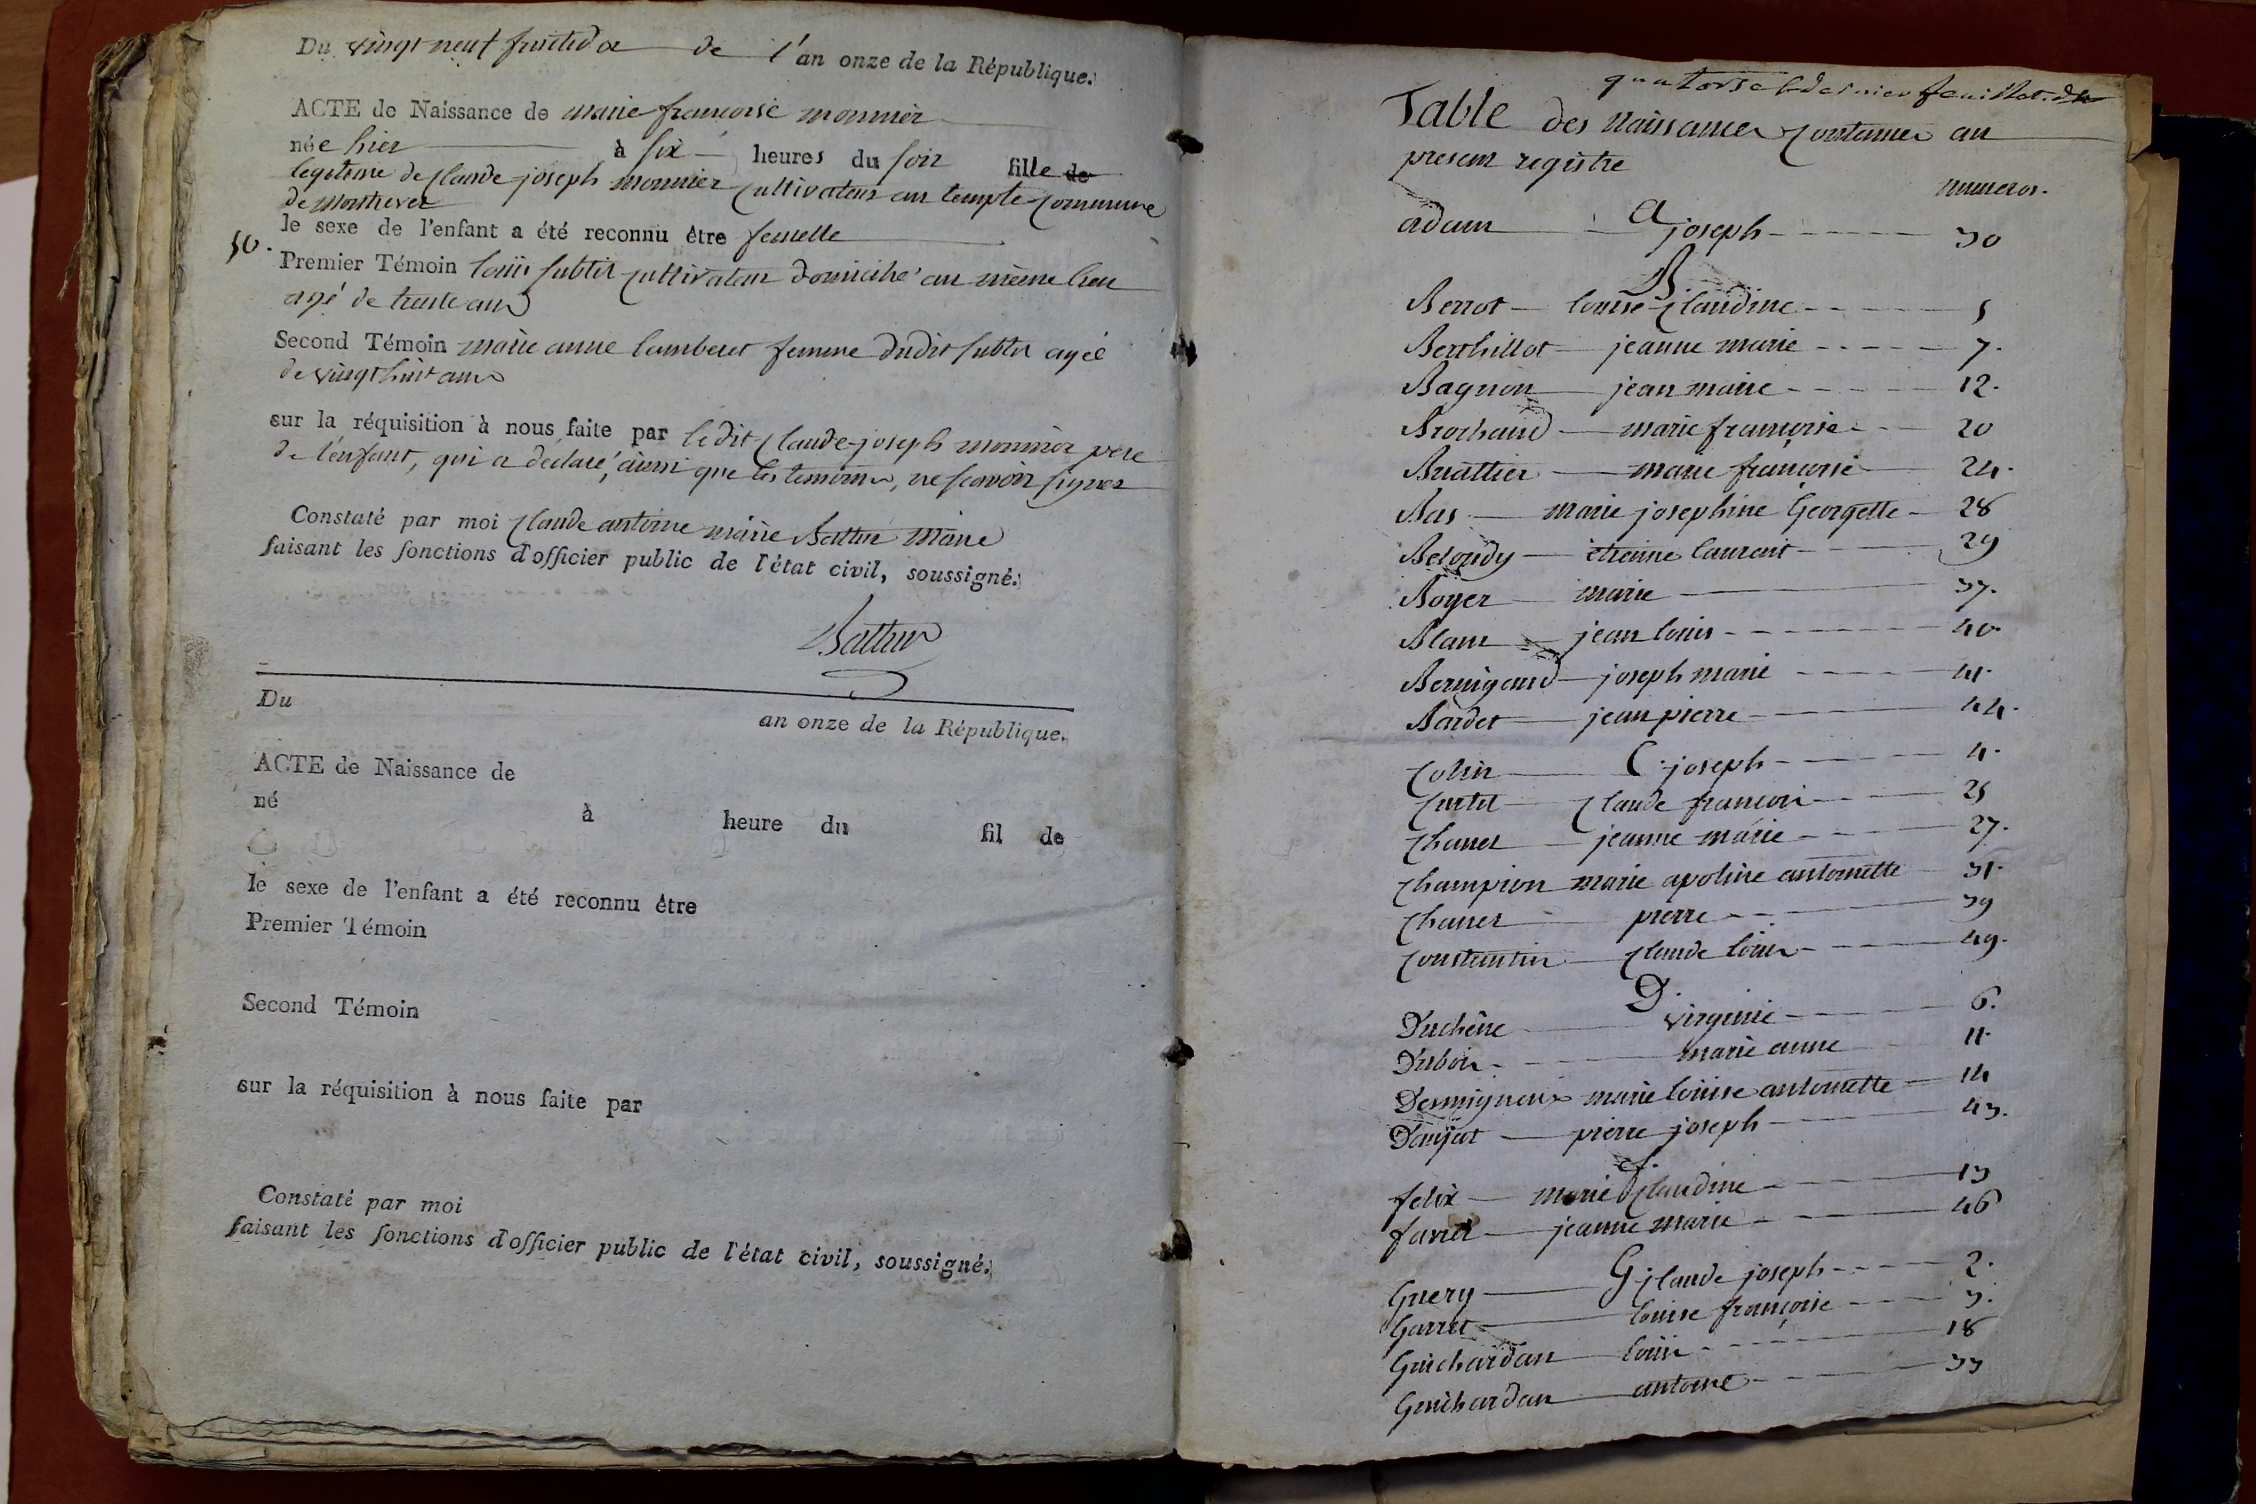 Du vingt neuf fructidor de l'an onze de la République.
ACTE de Naissance de marie francoise monnier
née hier à six heures du soir fille de
legitime de claude joseph monnier cultivateur au temple commune
de
le sexe de l'enfant a été reconnu être femelle
50.
Premier Témoin louis cultivateur domicilié au même lieu
agé de trente ans
Second Témoin marie anne lamberet femme dudit agée
de vingt huit ans
sur la réquisition à nous faite par ledit claude-joseph monnier pere
de l'enfant, qui a déclaré, ainsi que les temoins, ne scavoir signer
Constaté par moi claude antoine marie maire
faisant les fonctions d'officier public de l'état civil, soussigné.
Du
an onze de la République.
ACTE de Naissance de
né à heure du fil de
le sexe de l'enfant a été reconnu être
Premier Témoin
Second Témoin
sur la réquisition à nous faite par
Constaté par moi
faisant les fonctions d'officier public de l'état civil, soussigné.
quatorse & dernier feuillet.
Table des Naissances contenues au
present registre
numeros.
a
adam joseph 30
B
Berrot louise claudine 5
Berthillot jeanne marie 7.
Bagnon jean marie 12.
Brochand marie françoise 20
Buattier marie françoise 24.
Bas marie josephine Georgette 28
etienne laurent 29
Boyer marie 37.
Blanc jean louis 40.
Bernigaud joseph marie 41.
Bardet jean pierre 44.
C.
Colin joseph 4.
Curtil claude francois 25
Chanet jeanne marie 27.
Champion marie apoline antoinette 31.
Chanet pierre 39
Constantin claude louis 49.
D.
Duchêne virginie 6.
Dubois marie anne 11.
Desmigneux marie louise antoinette 14
pierre joseph 43.
f.
felix marie claudine 13
jeanne marie 46
G
Guery claude joseph 2.
Garret louise françoise 3.
Guichardan louis 18
Guichardan antoine 33